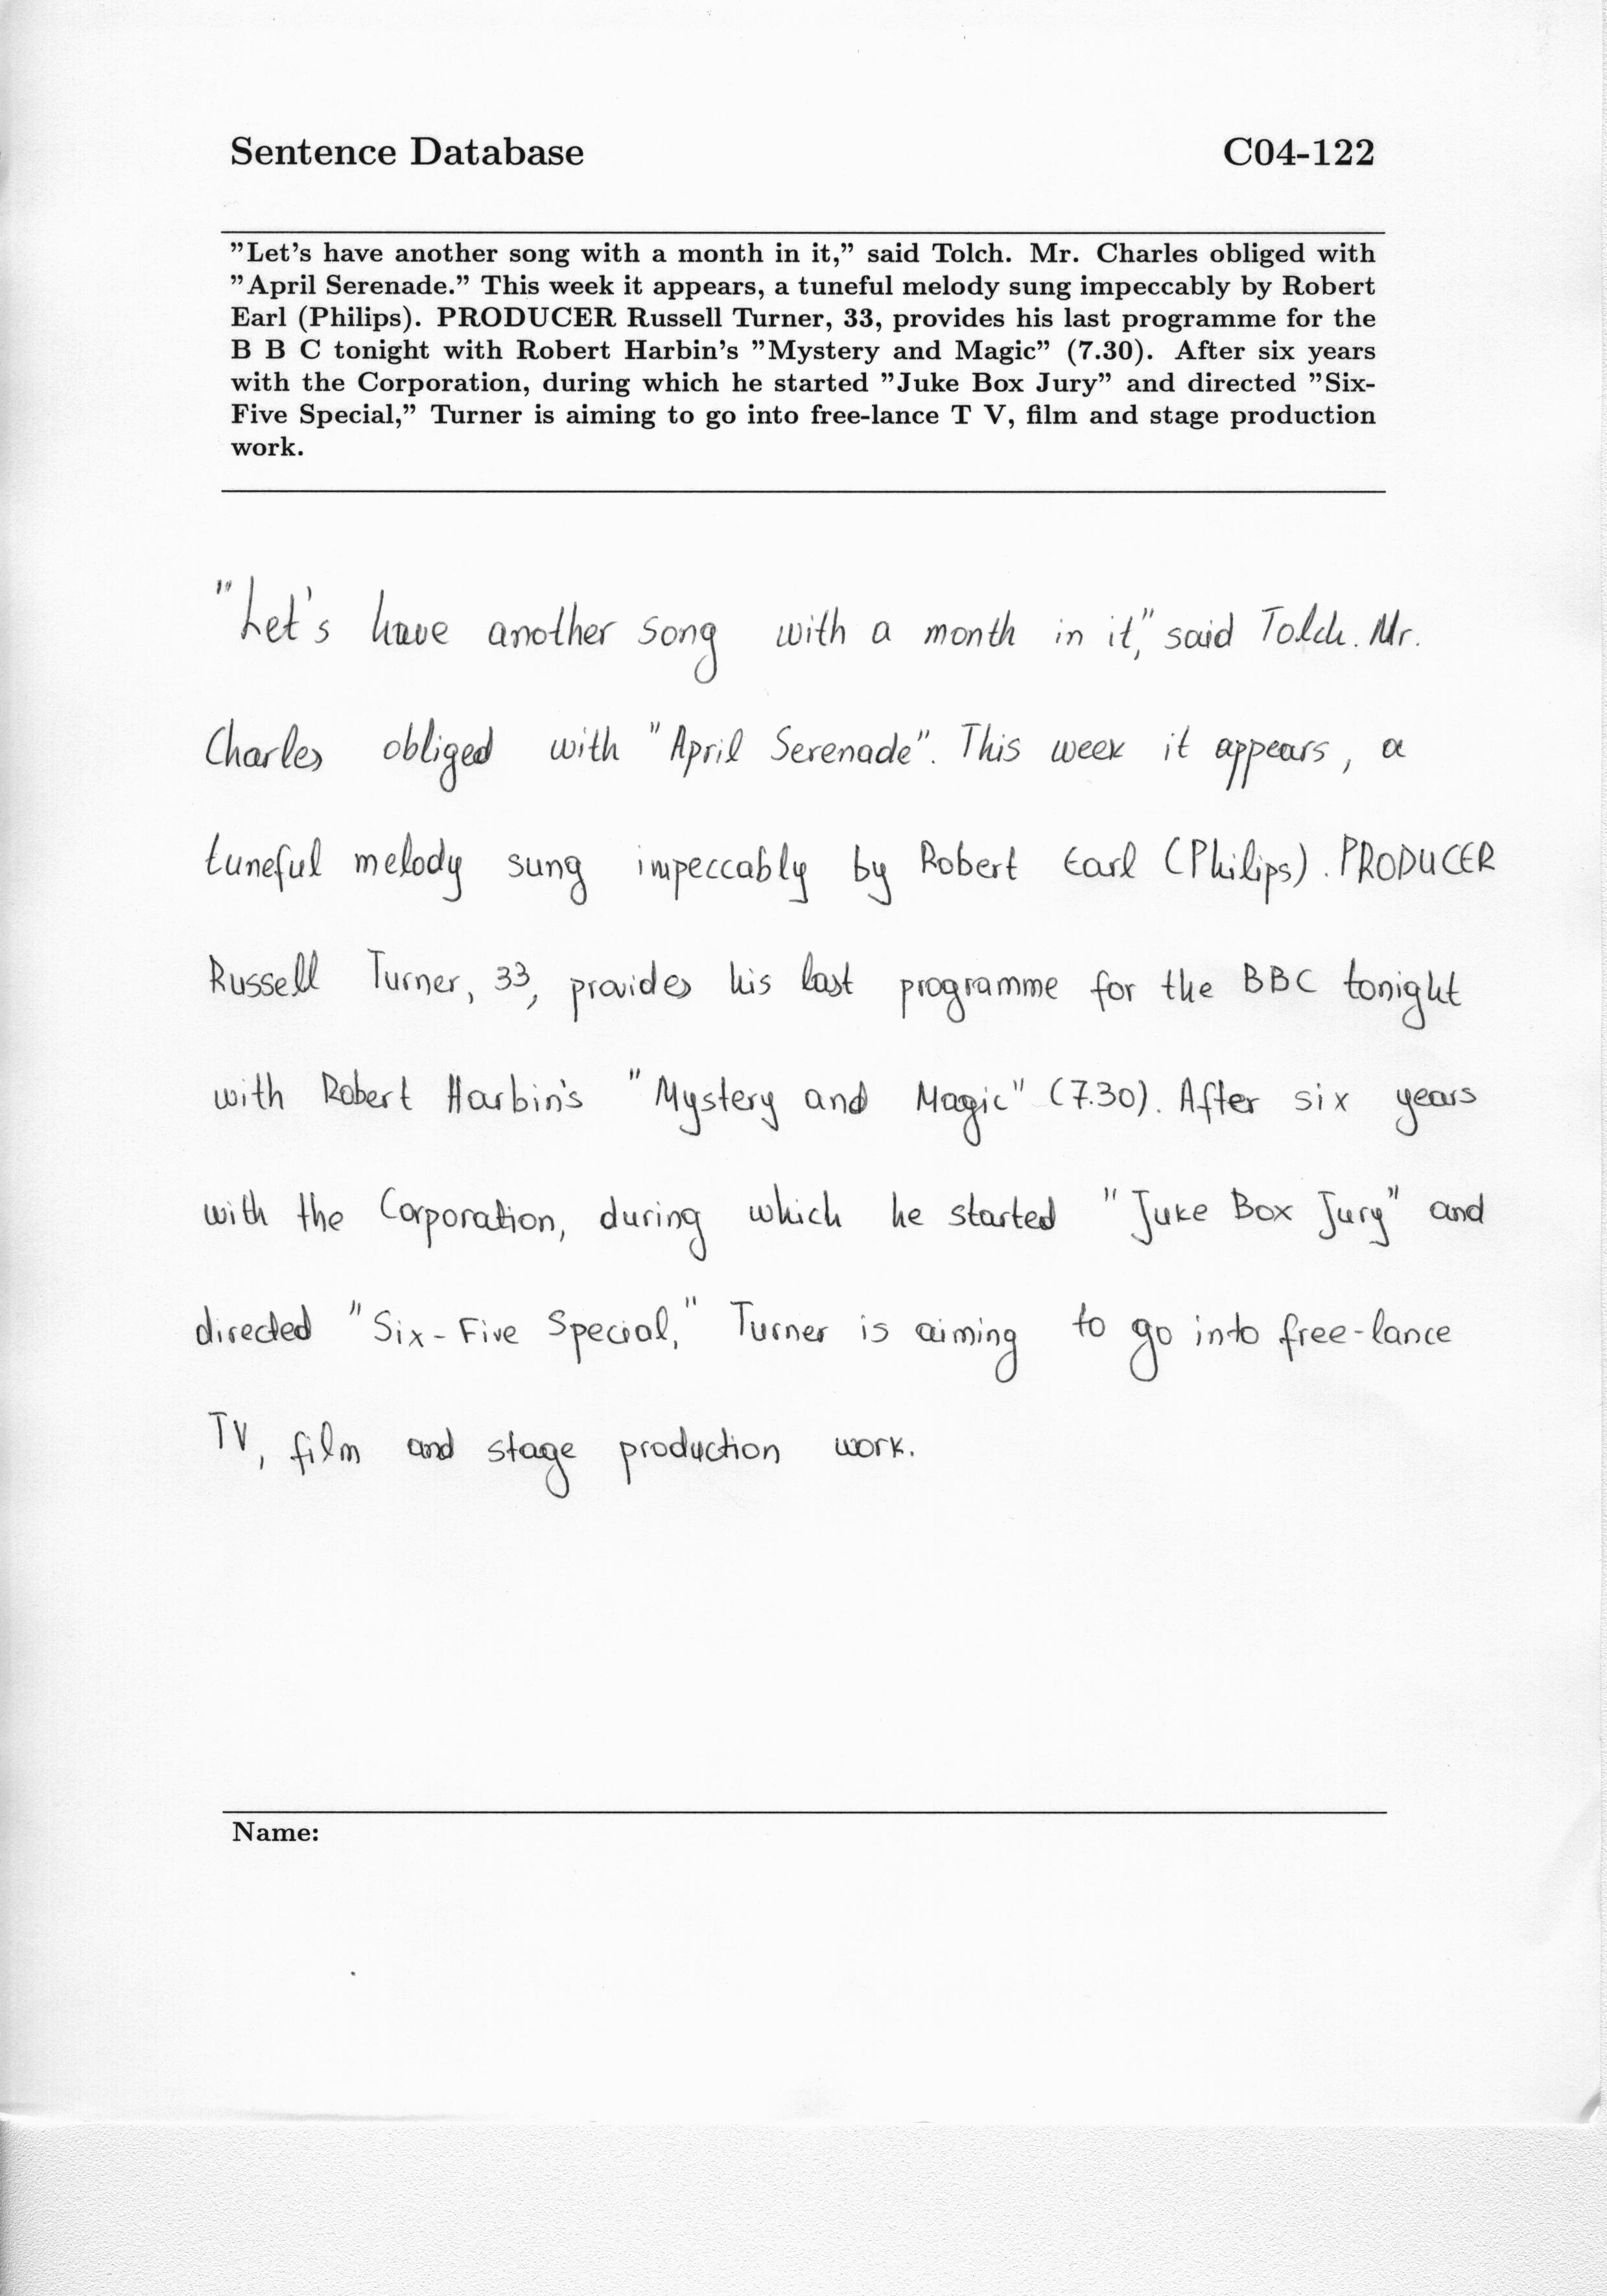 Sentence Database C04-122
"Let's have another song with a month in it," said Tolch. Mr. Charles obliged with
"April Serenade." This week it appears, a tuneful melody sung impeccably by Robert
Earl (Philips). PRODUCER Russell Turner, 33, provides his last programme for the
B B C tonight with Robert Harbin's "Mystery and Magic" (7.30). After six years
with the Corporation, during which he started "Juke Box Jury" and directed "Six-
Five Special," Turner is aiming to go into free-lance T V, film and stage production
work.
"Let's have another song with a month in it," said Tolch. Mr.
Charles obliged with "April Serenade". This week it appears, a
tuneful melody sung impeccably by Robert Earl (Philips). PRODUCER
Russell Turner, 33, provides his last programme for the BBC tonight
with Robert Harbin's "Mystery and Magic" (7.30). After six years
with the Corporation, during which he started "Juke Box Jury" and
directed "Six-Five Special," Turner is aiming to go into free-lance
TV, film and stage production work.
Name: